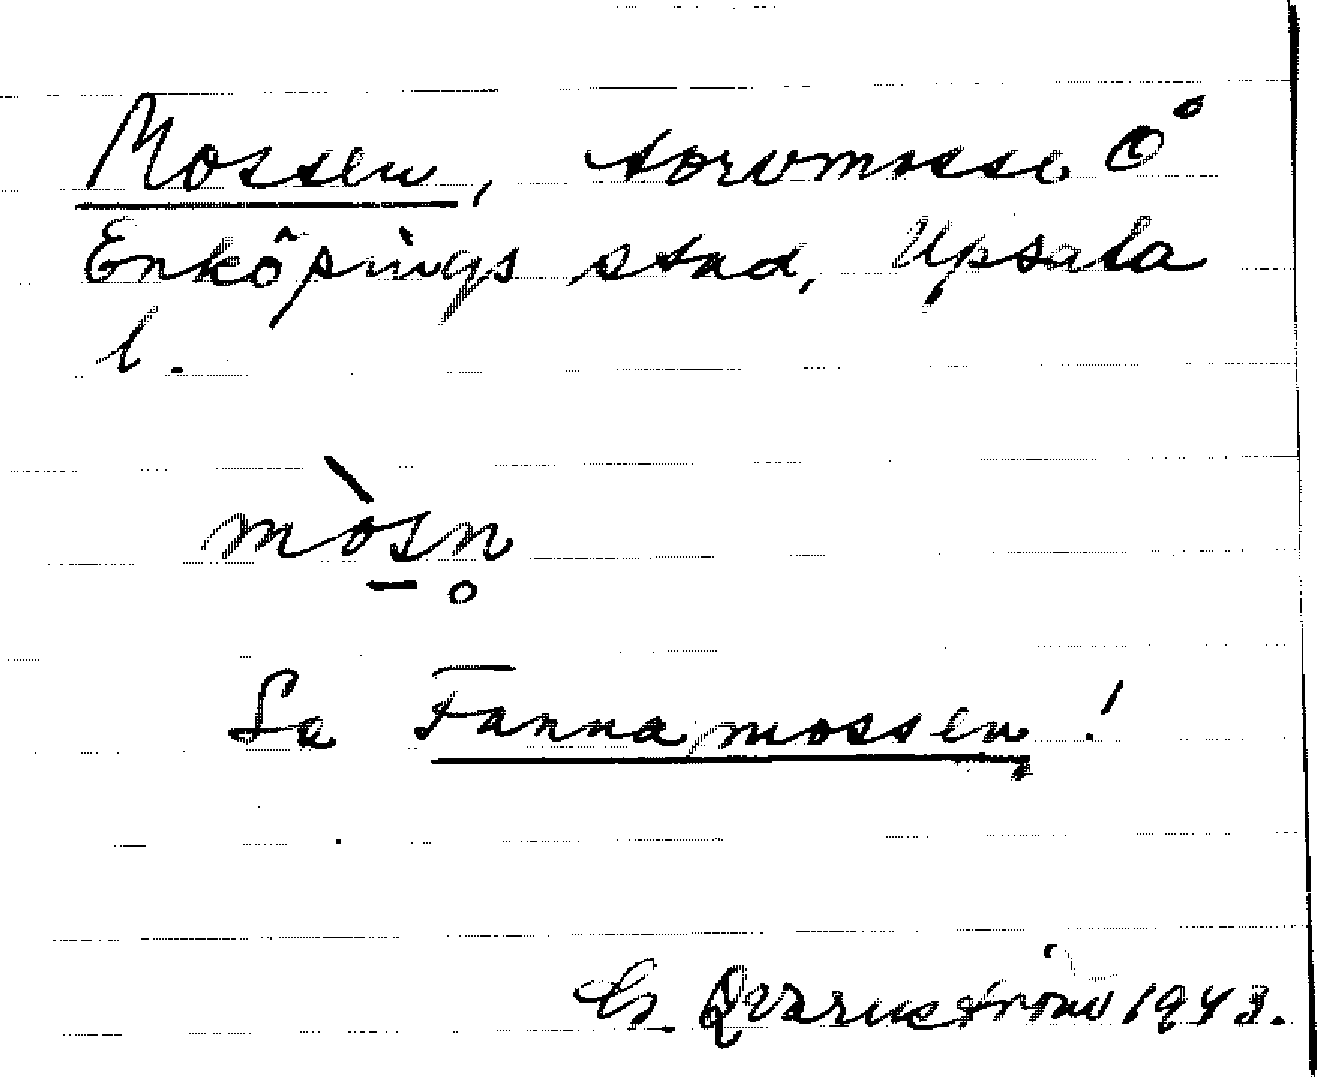 Mossen, torvmosse Ö
Enköpings stad, Upsala
l.
mòsn̥
Se Fannamossen!
G. Qvarnström 1943.